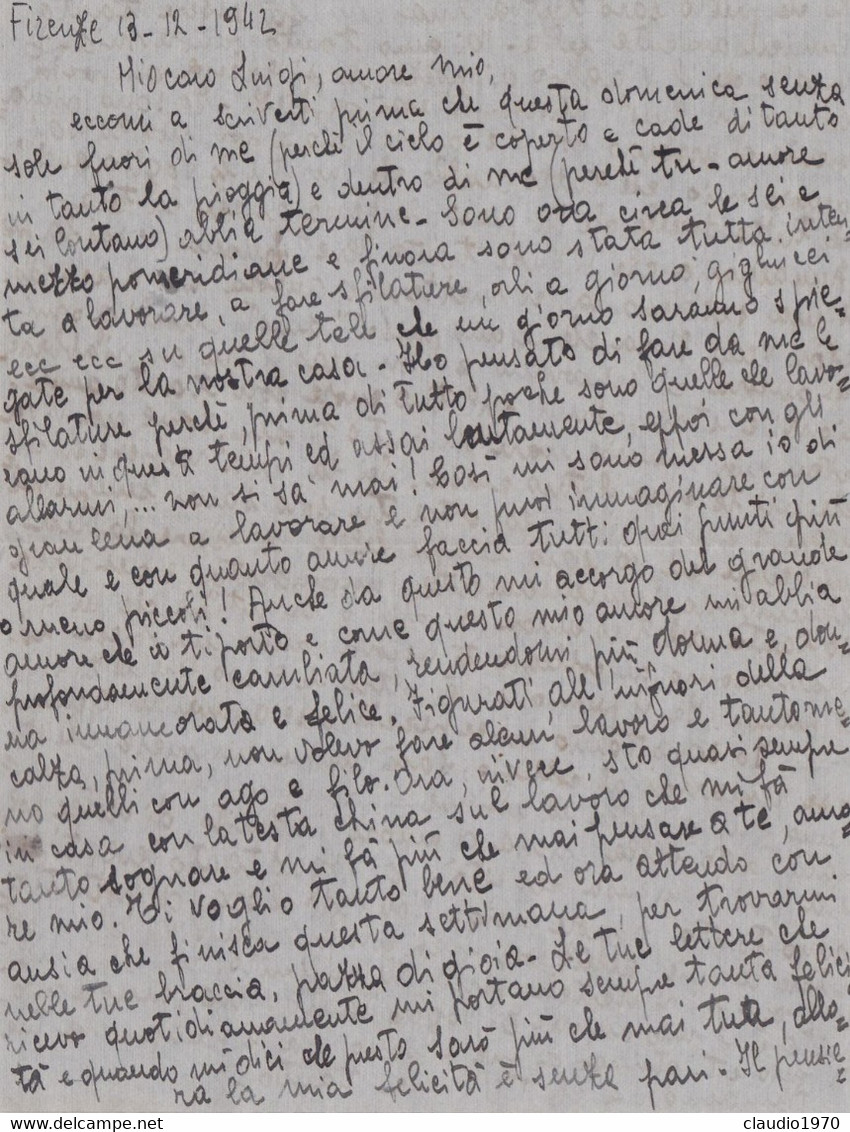 Firenze 13-12-1942
Mio caro Luigi, amore mio,
eccomi a scriverti prima che questa domenica senza
sole fuori di me (perchè il cielo è coperto e cade di tanto
in tanto la pioggia) e dentro di me (perchè tu - amore
sei lontano) abbia termine - Sono ora circa le sei e
mezzo pomeridiane e finora sono stata tutta inten-
ta a lavorare, a fare sfilature, orli a giorno, gigliucci
ecc ecc su quelle tele che un giorno saranno spie=
gate per la nostra casa - Ho pensato di fare da me le
sfilature perchè, prima di tutto poche sono quelle che lavo=
rano in questi tempi ed assai lentamente, eppoi con gli
allarmi,... non si sà mai! Così mi sono messa io di
gran lena a lavorare e non puoi immaginare con
quale e con quanto amore faccia tutti quei punti più
o meno piccoli! Anche da questo mi accorgo del grande
amore che io ti porto e come questo mio amore mi abbia
profondamente cambiata, rendendomi più donna e, don=
na innamorata e felice. Figurati, all'infuori della
calza, prima, non volevo fare alcun lavoro e tantome=
no quelli con ago e filo. Ora, invece, sto quasi sempre
in casa con la testa china sul lavoro che mi fà
tanto sognare e mi fà più che mai pensare a te, amo=
re mio. Ti voglio tanto bene ed ora attendo con
ansia che finisca questa settimana, per trovarmi
nelle tue braccia, pazza di gioia - Le tue lettere che
ricevo quotidianamente mi portano sempre tanta felici
tà e quando mi dici che presto sarò più che mai tua, allo=
ra la mia felicità è senza pari - Il pensie=
claudio1970